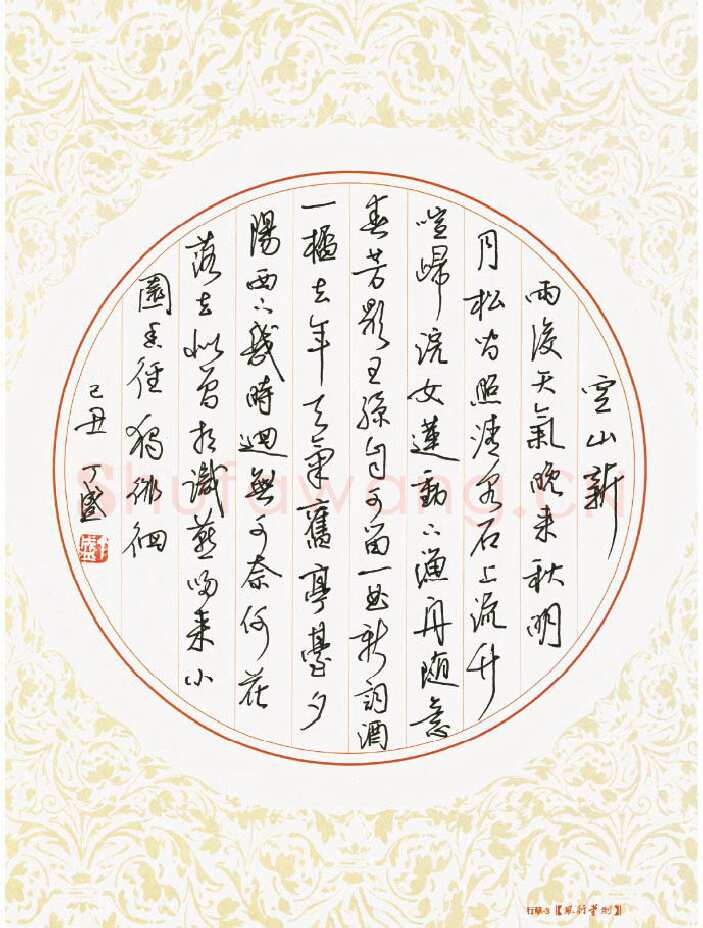 空山新
雨後天氣晚来秋明
月松间照清泉石上流竹
喧歸浣女蓮動下漁舟随意
春芳歇王孫自可留一曲新詞酒
一杯去年天氣舊亭臺夕
陽西下幾時迴無可奈何花
落去似曾相識燕歸来小
園香徑獨徘徊
己丑 丁盛
Shufawang.cn